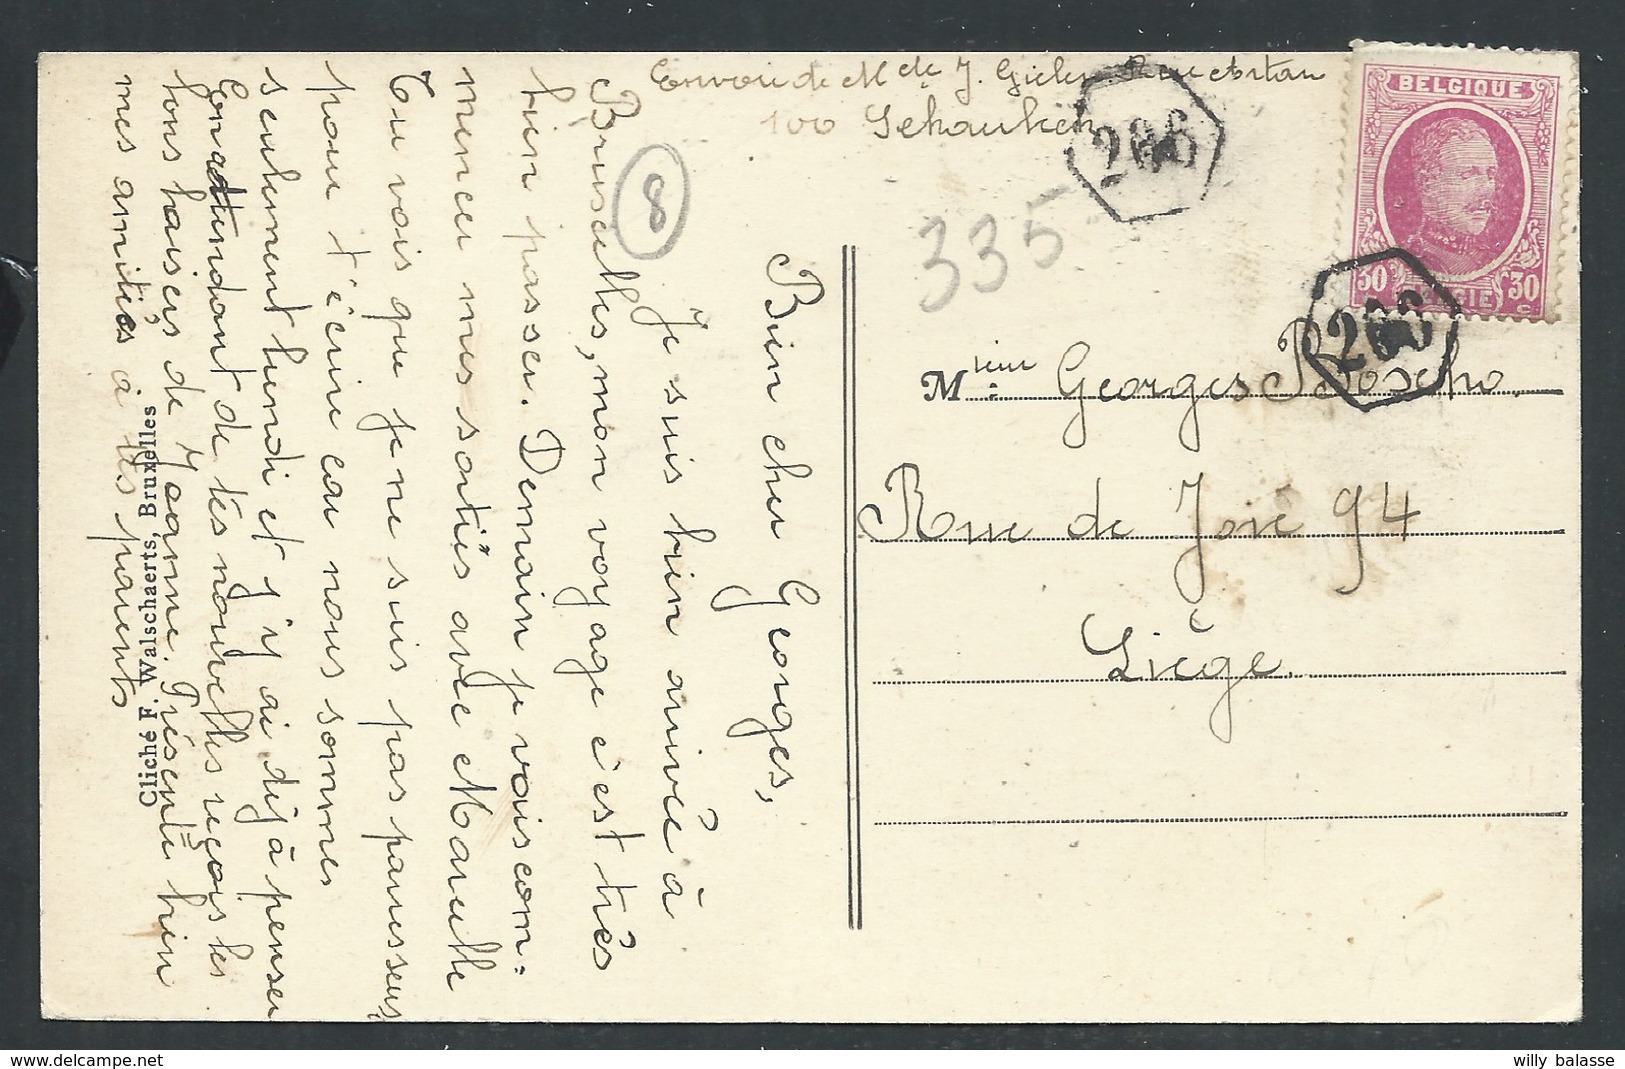 Envoi de Mlle J.
100
206
BELGIQUE
30 30
BELGIE
206
335
8
Bien cher Georges,
Je suis bien arrivée à
Bruxelles, mon voyage c'est très
bien passer. Demain je vais com-
mencer mes sorties avec Marcelle
Tu vois que je ne suis pas paresseuse
pour t'écrire car nous sommes
seulement lundi et j'y ai déjà penser
En attendant de tes nouvelles reçois les
bons baisers de Jeanne. Présente bien
mes amitiés à tes parents
Cliché F. Walschaerts, Bruxelles
Msieur Georges
Rue de Joie 94
Liège.
willy balasse